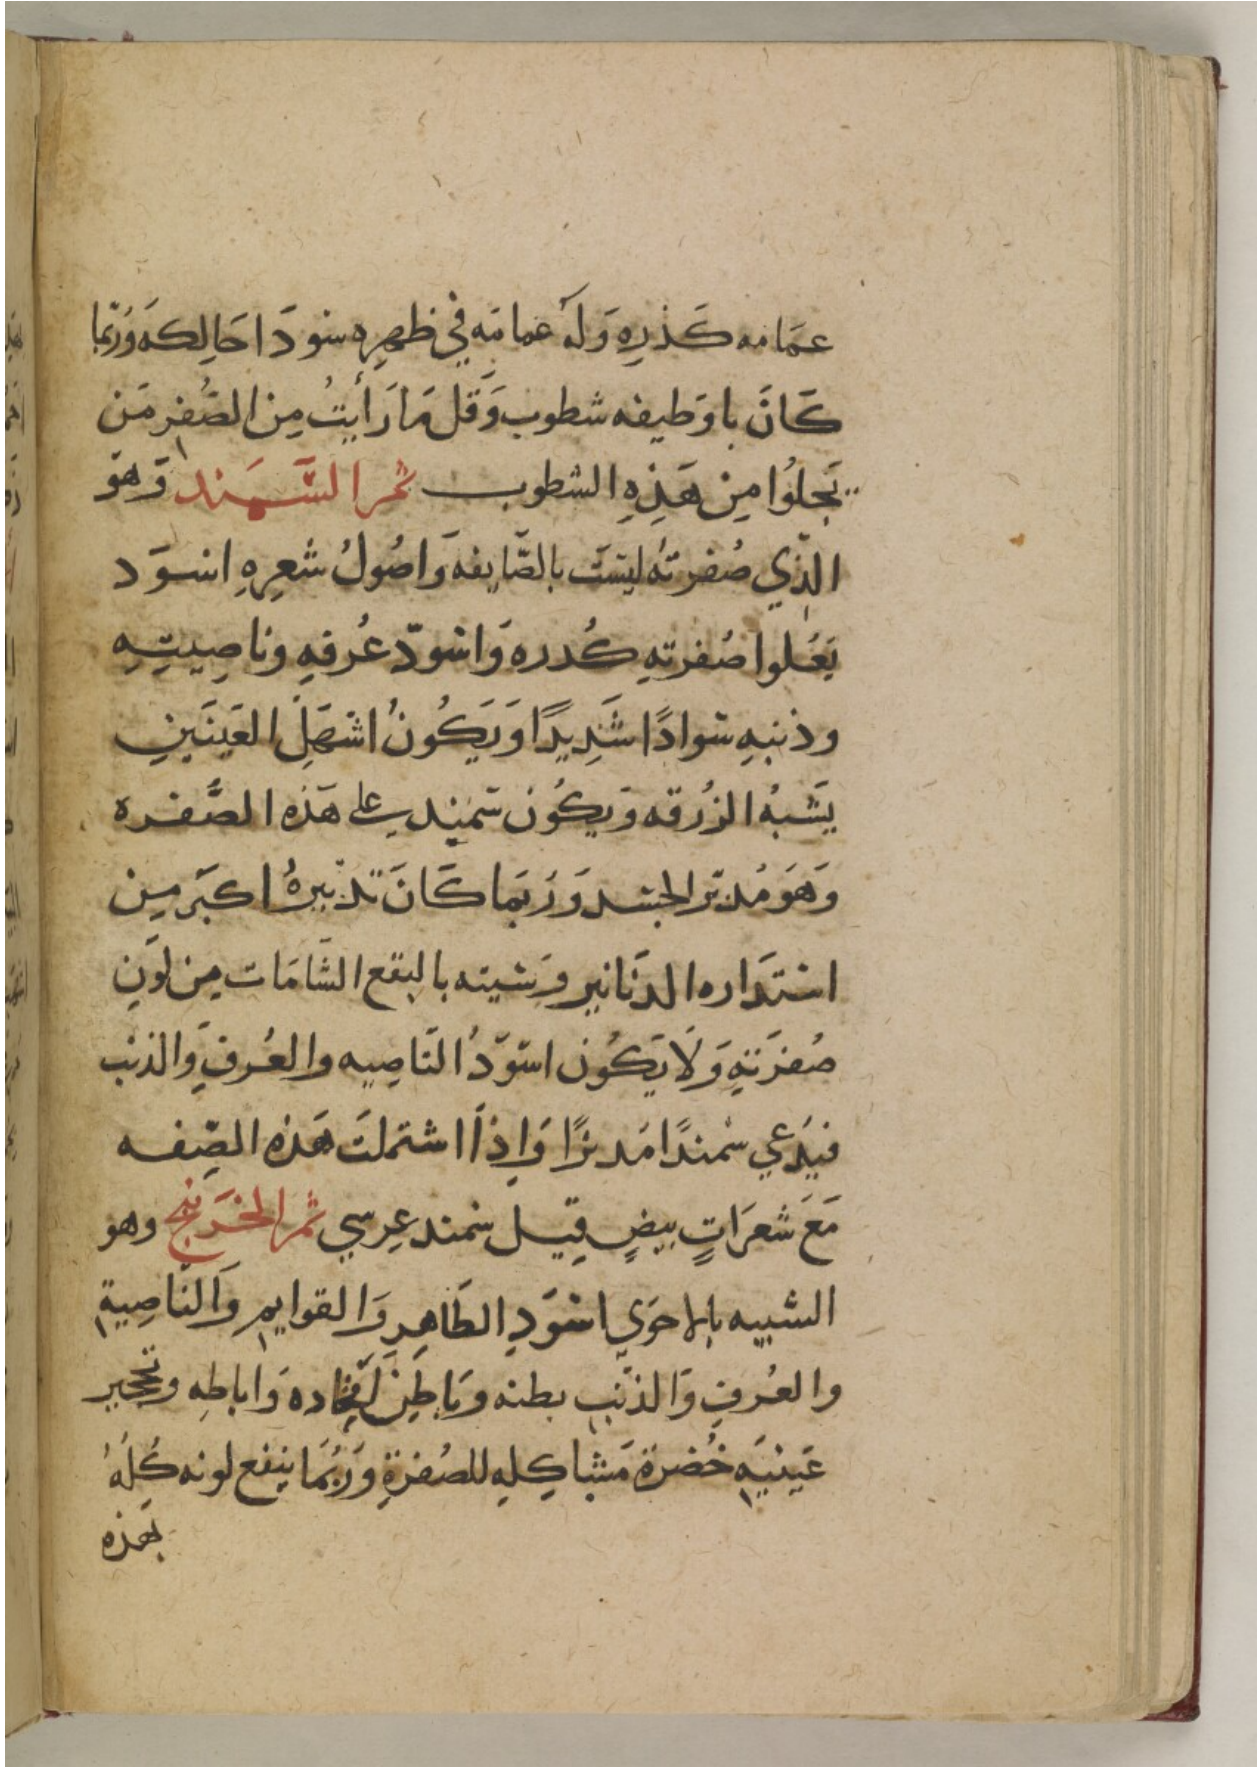 عمامه كذره وله عمامه في ظهره سودا حالكه وربما
كان باوظيفه شطوب وقل ما رأيت من الصفر من
يجلوا من هذه الشطوب ثمر السمند وهو
الذي صفرته ليست بالصايفه واصول شعره اسود
يعلوا صفرته كدره واسود عرفه وناصيته
وذنبه سوادا شديدا ويكون اشهل العينين
يشبه الزرقه ويكون سمند على هذه الصفره
وهو مدنر الجسد وربما كان تدنيره اكبر من
استداره الدنانير وشيته بالبقع الشامات من لون
صفرته ولا يكون اسود الناصيه والعرف والذنب
فيدعي سمندا مدنرا واذا اشتملت هذه الصفه
مع شعرات بيض قيل سمند عرسي ثمر الخرنج وهو
الشبيه بالاحوي اسود الظاهر والقوايم والناصية
والعرف والذنب بطنه وباطن افخاده واباطه وتحجير
عينيه خضرة مشاكله للصفرة وربما ينفع لونه كله
بهذه